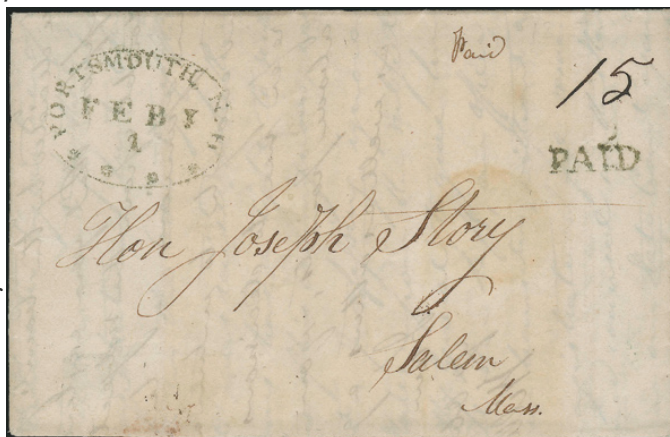 PORTSMOUTH N.H
FEBY
1
Paid
15
PAID
Hon Joseph Story
Salem
Mass.